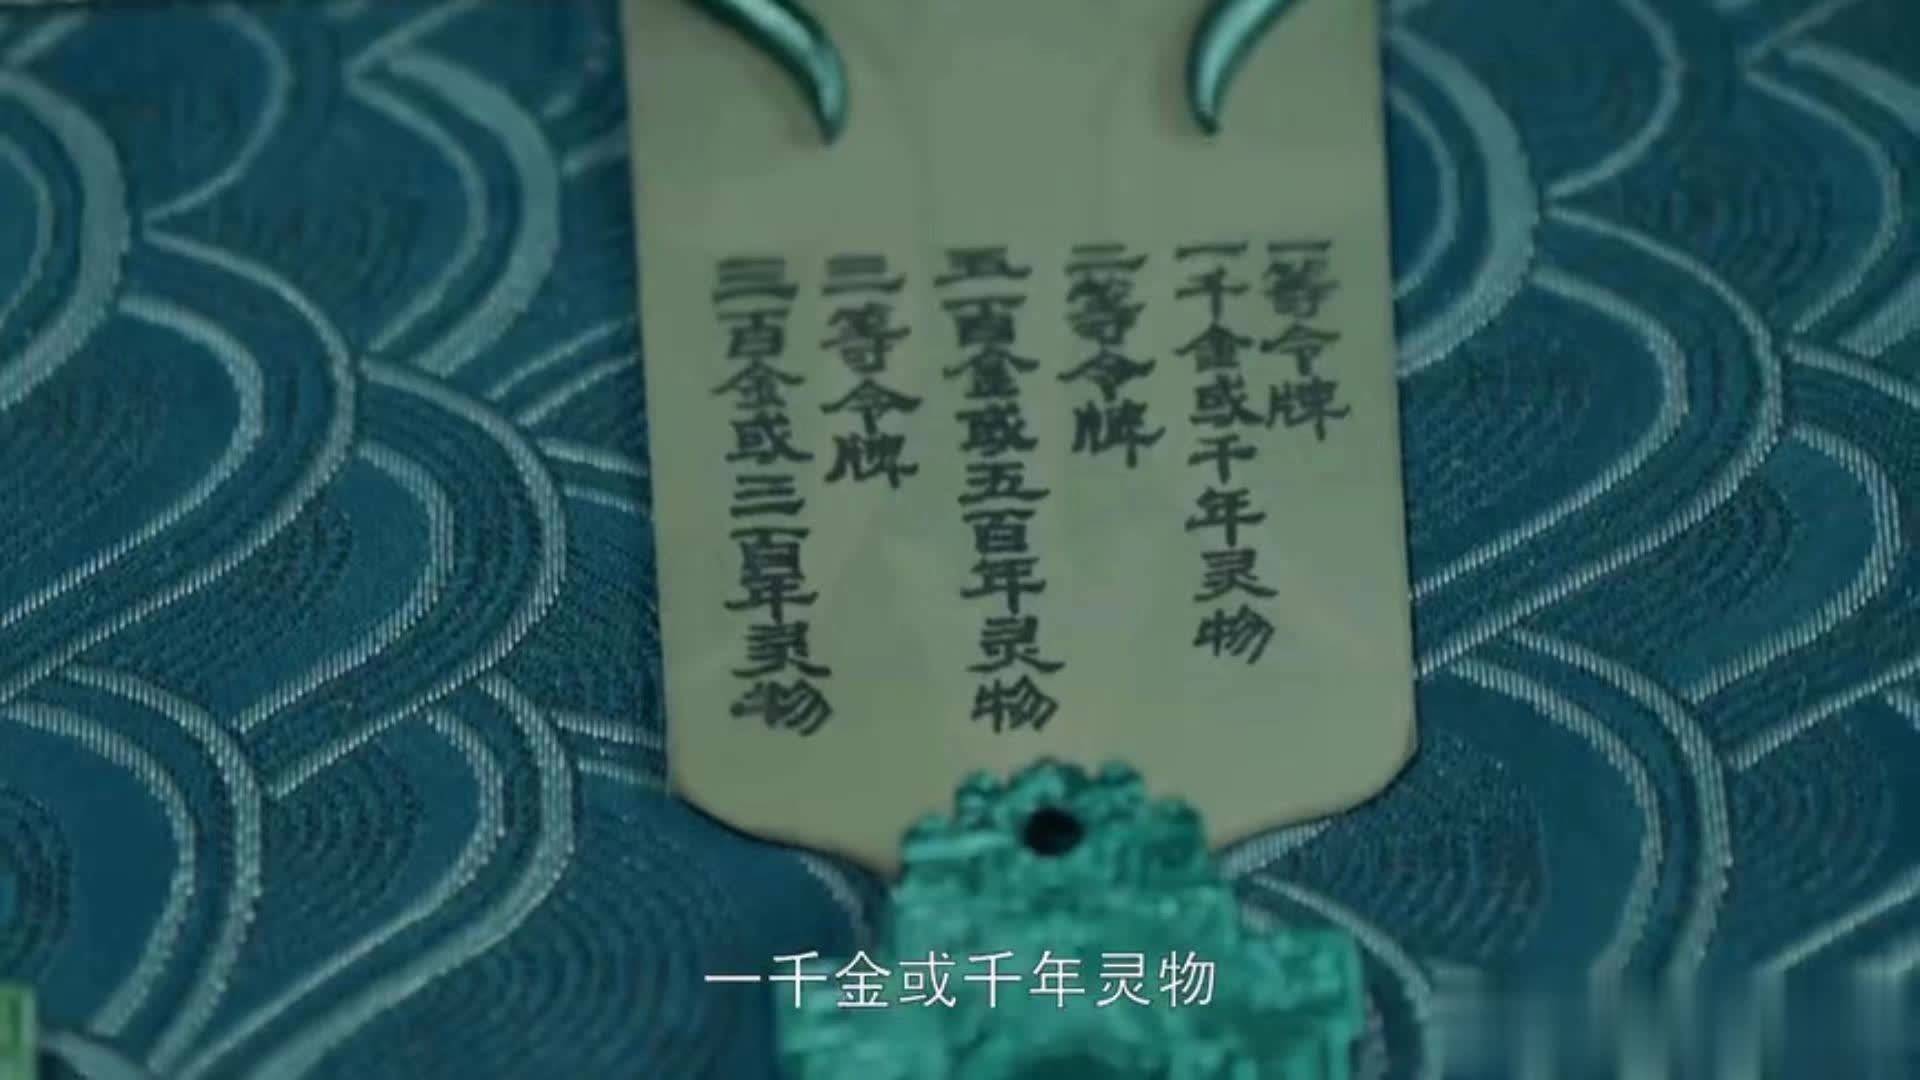 一等令牌
一千金或千年灵物
二等令牌
五百金或五百年灵物
三等令牌
三百金或三百年灵物
一千金或千年灵物